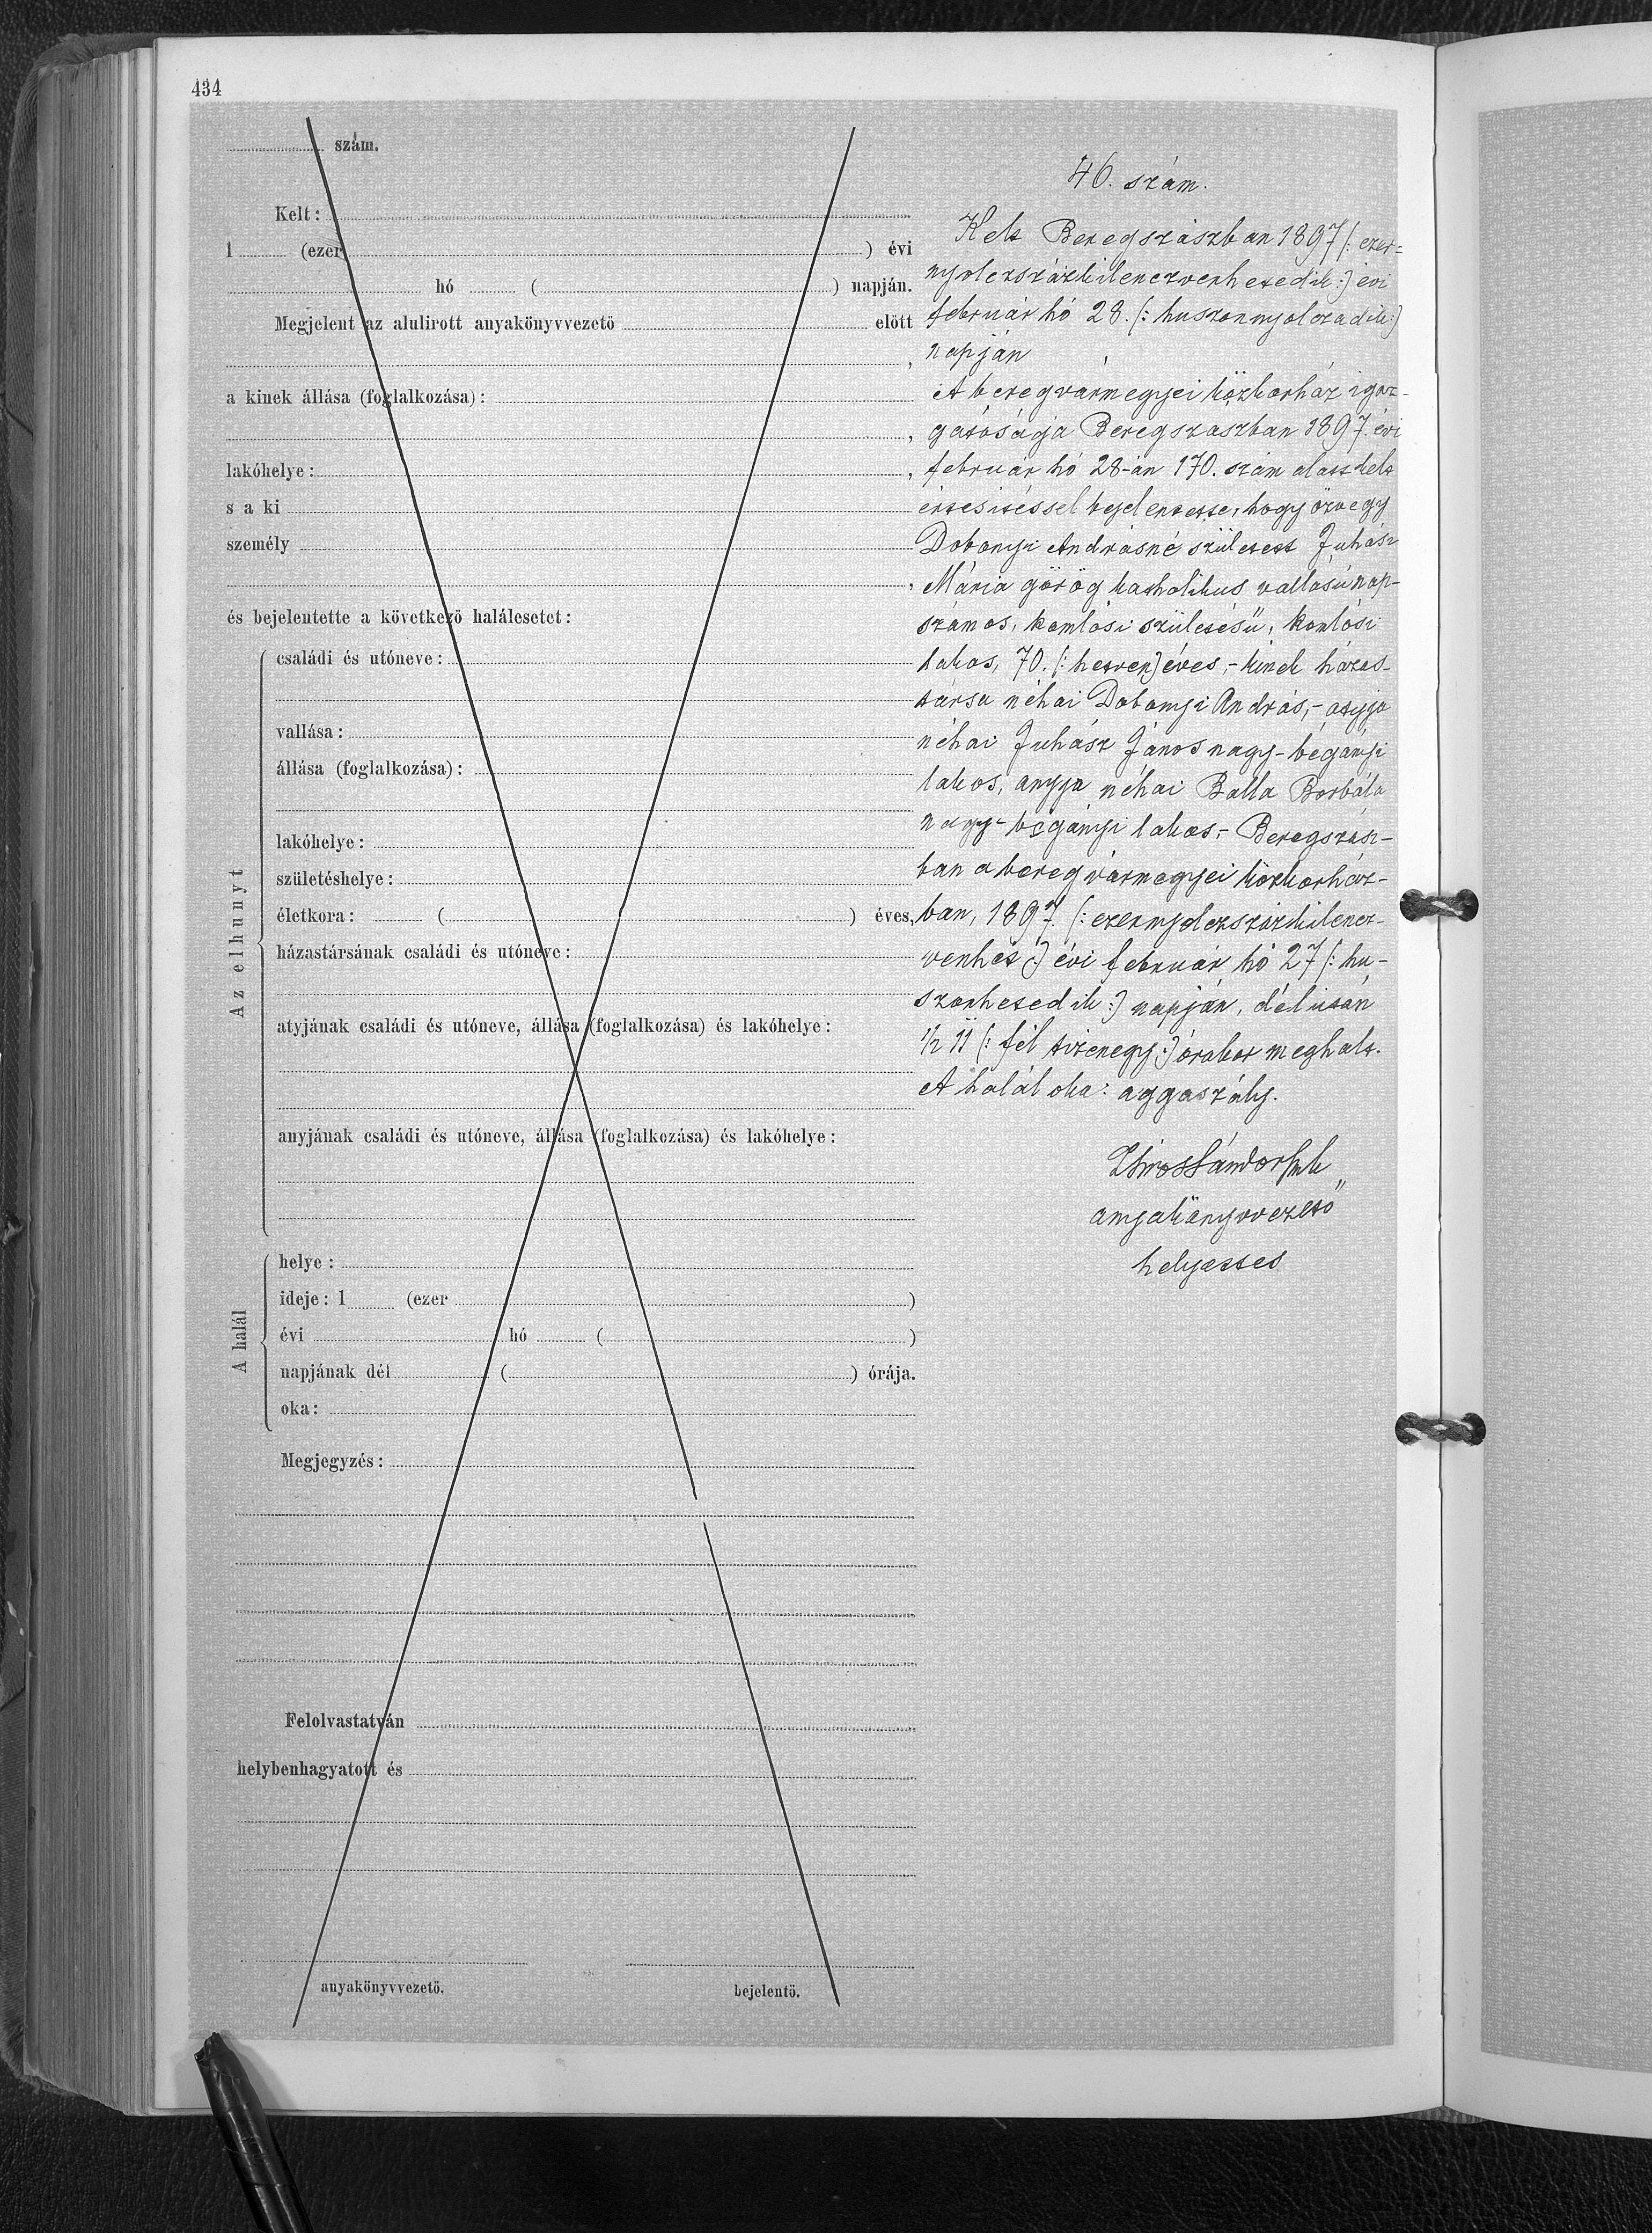 434
szám.
Kelt:
1 (ezer ) évi
hó ( ) napján.
Megjelent az alulirott anyakönyvvezető előtt
,
a kinek állása (foglalkozása):
,
lakóhelye: ,
s a ki
személy
,
és bejelentette a következő halálesetet:
Az elhunyt
családi és utóneve:
vallása:
állása (foglalkozása):
lakóhelye:
születéshelye:
életkora: ( ) éves,
házastársának családi és utóneve:
atyjának családi és utóneve, állása (foglalkozása) és lakóhelye:
anyjának családi és utóneve, állása (foglalkozása) és lakóhelye:
A halál
helye:
ideje: 1 (ezer )
évi hó ( )
napjának dél ( ) órája.
oka:
Megjegyzés:
Felolvastatván
helybenhagyatott és
anyakönyvvezető. bejelentő.
46. szám.
Kelt Beregszászban 1897 (: ezer=
nyolczszázkilenczvenhetedik :) évi
február hó 28. (: huszonnyolczadik :)
napján
A beregvármegyei közkorház igaz-
gatósága Beregszászban 1897. évi
február hó 28-án 170. szám alatt kelt
értesitéssel bejelentette, hogy özvegy
Dobonyi Andrásné született Juhász
Mária görög katholikus vallású nap-
számos, komlósi születésü, komlósi
lakos, 70. (: hetven) éves, - kinek házas-
társa néhai Dobonyi András, - atyja
néhai Juhász János nagy-bégányi
lakos, anyja néhai Balla Borbála
nagy-bégányi lakos, - Beregszász-
ban a beregvármegyei közkorház-
ban, 1897. (: ezernyolczszázkilencz-
venhét :) évi február hó 27 (: hu-
szonhetedik :) napján, délután
½ 11 (: fél tizenegy :) órakor meghalt.
A halál oka: aggaszály.
Sándor
anyakönyvvezető
helyettes